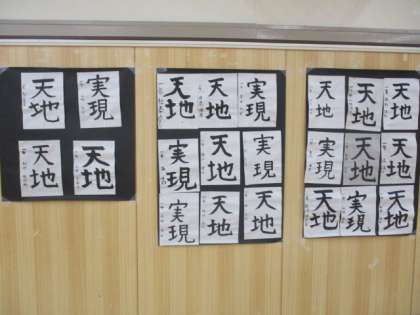 天地
実現
天地
天地
天地
天地
実現
実現
天地
実現
実現
天地
天地
天地
天地
天地
実現
天地
実現
天地
実現
天地